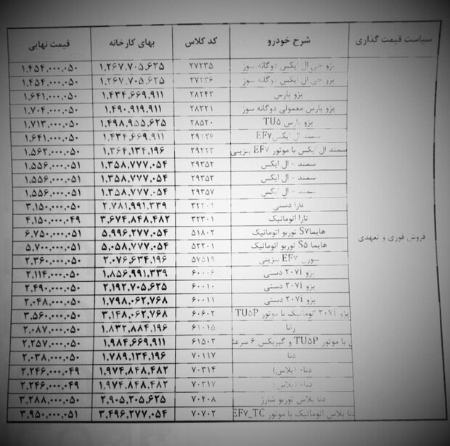 سیاست قیمت گذاری شرح خودرو کد کلاس بهای کارخانه قیمت نهایی
فروش فوری و تعهدی
پژو جی ال ایکس دوگانه سوز ۲۷۲۳۵ ۱.۲۶۷.۷۰۵.۶۳۵ ۱.۴۵۴.۰۰۰.۰۵۰
پژو جی ال ایکس دوگانه سوز ۲۷۲۳۶ ۱.۲۶۷.۷۰۵.۶۳۵ ۱.۴۵۴.۰۰۰.۰۵۰
پژو پارس ۲۸۲۴۳ ۱.۴۳۴.۶۶۹.۹۱۱ ۱.۶۴۱.۰۰۰.۰۵۰
پژو پارس معمولی دوگانه سوز ۲۸۳۲۱ ۱.۴۹۰.۹۱۹.۹۱۱ ۱.۷۰۴.۰۰۰.۰۵۰
پژو پارس TU5 ۲۸۵۲۰ ۱.۴۹۸.۹۵۵.۶۲۵ ۱.۷۱۳.۰۰۰.۰۵۰
سمند ال ایکس EF7 ۱.۴۳۴.۶۶۹.۹۱۱ ۱.۶۴۱.۰۰۰.۰۵۰
سمند ال ایکس با موتور EF7 بنزینی ۱.۳۶۴.۱۳۴.۱۹۶ ۱.۵۶۲.۰۰۰.۰۵۰
سمند - ال ایکس ۲۹۳۵۲ ۱.۳۵۸.۷۷۷.۰۵۴ ۱.۵۵۶.۰۰۰.۰۵۱
سمند - ال ایکس ۲۹۳۵۳ ۱.۳۵۸.۷۷۷.۰۵۴ ۱.۵۵۶.۰۰۰.۰۵۱
سمند - ال ایکس ۲۹۳۵۷ ۱.۳۵۸.۷۷۷.۰۵۴ ۱.۵۵۶.۰۰۰.۰۵۱
تارا دستی ۳۲۲۰۱ ۲.۷۸۱.۹۹۱.۳۳۹ ۳.۱۵۰.۰۰۰.۰۵۰
تارا اتوماتیک ۳۲۳۰۱ ۳.۶۷۴.۸۴۸.۴۸۲ ۴.۱۵۰.۰۰۰.۰۴۹
هایما S7 توربو اتوماتیک ۵۱۸۰۲ ۵.۹۹۶.۲۷۷.۰۵۴ ۶.۷۵۰.۰۰۰.۰۵۱
هایما S5 توربو اتوماتیک ۵۲۲۰۱ ۵.۰۵۸.۷۷۷.۰۵۴ ۵.۷۰۰.۰۰۰.۰۵۱
سورن EF7 بنزینی ۵۷۵۱۱ ۲.۰۷۶.۶۳۴.۱۹۶ ۲.۳۶۰.۰۰۰.۰۵۰
پژو 207i دستی ۶۰۰۰۶ ۱.۸۵۶.۹۹۱.۳۳۹ ۲.۱۱۴.۰۰۰.۰۵۰
پژو 207i دستی ۶۰۰۱۰ ۲.۱۹۲.۷۰۵.۶۲۵ ۲.۴۹۰.۰۰۰.۰۵۰
پژو 207i دستی ۶۰۰۱۱ ۱.۷۹۸.۰۶۲.۷۶۸ ۲.۰۴۸.۰۰۰.۰۵۰
پژو 207i اتوماتیک با موتور TU5P ۶۰۶۰۲ ۳.۱۴۸.۰۶۲.۷۶۸ ۳.۵۶۰.۰۰۰.۰۵۰
رانا ۶۱۰۱۵ ۱.۸۳۲.۸۸۴.۱۹۶ ۲.۰۸۷.۰۰۰.۰۵۰
با موتور TU5P و گیربکس ۶ سرعته ۶۱۵۰۲ ۱.۹۸۴.۶۶۹.۹۱۱ ۲.۲۵۷.۰۰۰.۰۵۰
دنا ۷۰۱۱۷ ۱.۷۸۹.۱۳۴.۱۹۶ ۲.۰۳۸.۰۰۰.۰۵۰
دنا+ (پلاس) ۷۰۳۱۴ ۱.۹۷۴.۸۴۸.۴۸۲ ۲.۲۴۶.۰۰۰.۰۴۹
دنا+ (پلاس) ۷۰۳۱۷ ۱.۹۷۴.۸۴۸.۴۸۲ ۲.۲۴۶.۰۰۰.۰۴۹
دنا پلاس توربو شارژ ۷۰۴۰۸ ۲.۹۰۵.۲۰۵.۶۲۵ ۳.۲۸۸.۰۰۰.۰۵۰
دنا پلاس اتوماتیک با موتور EF7_TC ۷۰۷۰۲ ۳.۴۹۶.۲۷۷.۰۵۴ ۳.۹۵۰.۰۰۰.۰۵۱